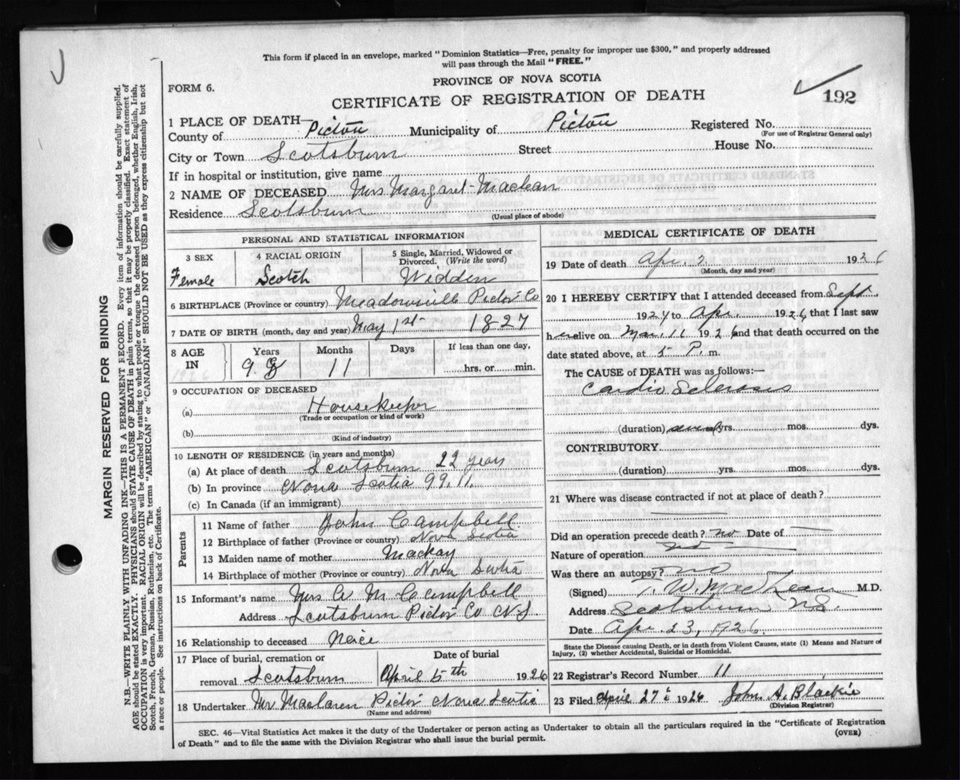 This form if placed in an envelope, marked "Dominion Statistics—Free, penalty for improper use $300," and properly addressed
will pass through the Mail "FREE."
FORM 6.
PROVINCE OF NOVA SCOTIA
CERTIFICATE OF REGISTRATION OF DEATH
192
1 PLACE OF DEATH—
County of Pictou Municipality of Pictou Registered No.
(For use of Registrar General only)
City or Town Scotsburn Street House No.
If in hospital or institution, give name
2 NAME OF DECEASED Mrs Margaret Maclean
Residence Scotsburn
(Usual place of abode)
PERSONAL AND STATISTICAL INFORMATION
3 SEX
Female
4 RACIAL ORIGIN
Scotch
5 Single, Married, Widowed or Divorced. (Write the word)
Widden
6 BIRTHPLACE (Province or country) Meadowville Pictou Co
7 DATE OF BIRTH (month, day and year) May 1st 1827
8 AGE IN
Years Months Days If less than one day,
9 11 hrs. or min.
9 OCCUPATION OF DECEASED
(a) Housekeeper
(Trade or occupation or kind of work)
(b)
(Kind of industry)
10 LENGTH OF RESIDENCE (in years and months)
(a) At place of death Scotsburn 22 years
(b) In province Nova Scotia 99.11
(c) In Canada (if an immigrant)
Parents
11 Name of father John Campbell
12 Birthplace of father (Province or country) Nova Scotia
13 Maiden name of mother Mackay
14 Birthplace of mother (Province or country) Nova Scotia
15 Informant's name Mrs M Campbell
Address Scotsburn Pictou Co N.S
16 Relationship to deceased Neice
17 Place of burial, cremation or removal Scotsburn
Date of burial
April 5th 1926
18 Undertaker Mr Maclaren Pictou Nova Scotia
(Name and address)
MEDICAL CERTIFICATE OF DEATH
19 Date of death Apr. 2 1926
(Month, day and year)
20 I HEREBY CERTIFY that I attended deceased from Sept.
1924 to Apr. 1926 that I last saw
her alive on Mar. 11 1926 and that death occurred on the
date stated above, at 5 P. m.
The CAUSE of DEATH was as follows:—
Cardio Sclerosis
(duration) several yrs. mos. dys.
CONTRIBUTORY
(duration) yrs. mos. dys.
21 Where was disease contracted if not at place of death?
Did an operation precede death? no Date of
Nature of operation
Was there an autopsy? no
(Signed) T. W. MacLean M.D.
Address Scotsburn N.S.
Date Apr. 23, 1926.
State the Disease causing Death, or in death from Violent Causes, state (1) Means and Nature of
Injury, (2) whether Accidental, Suicidal or Homicidal.
22 Registrar's Record Number 11
23 Filed April 27 1926 John A. Blackie
(Division Registrar)
SEC. 46—Vital Statistics Act makes it the duty of the Undertaker or person acting as Undertaker to obtain all the particulars required in the "Certificate of Registration
of Death" and to file the same with the Division Registrar who shall issue the burial permit.
(OVER)
MARGIN RESERVED FOR BINDING
N.B.—WRITE PLAINLY WITH UNFADING INK—THIS IS A PERMANENT RECORD. Every item of information should be carefully supplied.
AGE should be stated EXACTLY. PHYSICIANS should STATE CAUSE OF DEATH in plain terms, so that it may be properly classified. Exact statement of
OCCUPATION is very important. RACIAL ORIGIN will be described by stating to what people or tongue the deceased person belonged, whether English, Irish,
Scotch, French, German, Russian, Ruthenian, etc. The terms "AMERICAN" or "CANADIAN" SHOULD NOT BE USED as they express citizenship but not
a race or people. See instructions on back of Certificate.